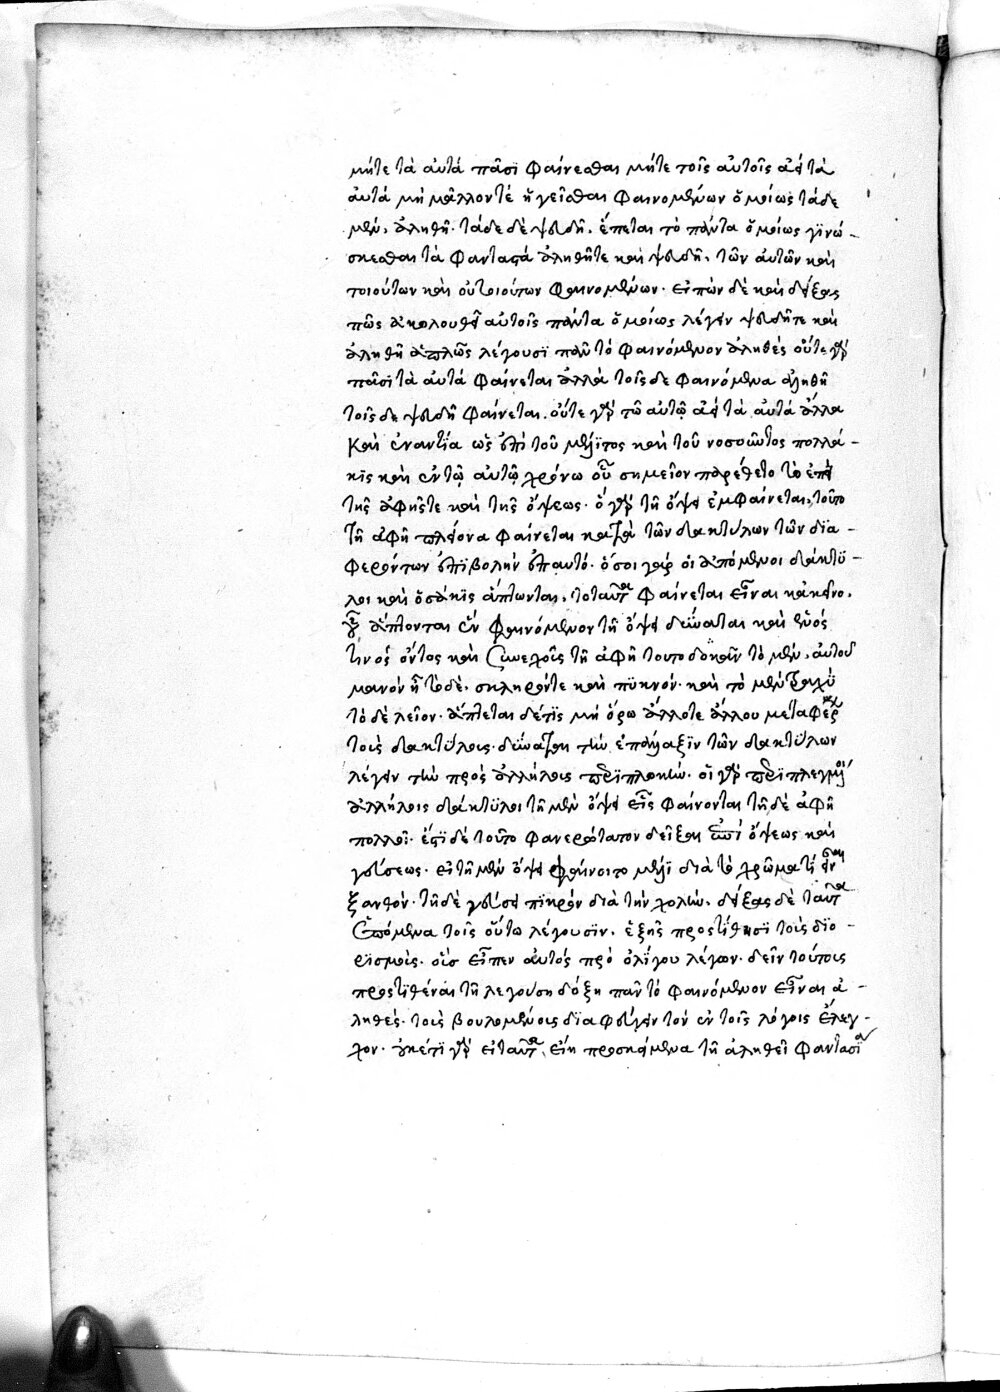 μήτε τὰ αὐτὰ πᾶσι φαίνεσθαι μήτε τοῖς αὐτοῖς ἀεὶ τὰ
αὐτὰ μὴ μᾶλλόν τε ἡγεῖσθαι φαινομένων ὁμοίως τάδε
μὲν, ἀληθῆ· τάδε δὲ ψευδῆ, ἕπεται τὸ πάντα ὁμοίως γινώ-
σκεσθαι τὰ φανταστὰ ἀληθῆ τε καὶ ψευδῆ, τῶν αὐτῶν καὶ
τοιούτων καὶ οὐ τοιούτων φαινομένων· εἰπὼν δὲ καὶ δείξας
πῶς ἀκολουθεῖ αὐτοῖς πάντα ὁμοίως λέγειν ψευδῆ τε καὶ
ἀληθῆ ἁπλῶς λέγουσι πᾶν τὸ φαινόμενον ἀληθές οὔτε γὰρ
πᾶσι τὰ αὐτὰ φαίνεται ἀλλὰ τοῖσδε φαινόμενα ἀληθῆ
τοῖσδε ψευδῆ φαίνεται. οὔτε γὰρ τῶ αὐτῶ ἀεὶ τὰ αὐτὰ ἀλλα
καὶ ἐναντία ὡς ἐπὶ τοῦ μέλιτος καὶ τοῦ νοσοῦντος πολλά-
κις καὶ ἐν τῶ αὐτῶ χρόνω οὗ σημεῖον παρέθετο τὸ ἐπὶ
τῆς ἁφῆς τε καὶ τῆς ὄψεως· ὃ γὰρ τῆ ὄψει ἐμφαίνεται, τοῦτο
τῆ ἁφῆ πλείονα φαίνεται κατὰ τῶν δακτύλων τῶν δια-
φερόντων ἐπιβολὴν ἐπαυτό· ὅσοι γάρ οἱ ἁπτόμενοι δάκτυ-
λοι καὶ ὁσάκις ἅπτωνται, τοταῦτα φαίνεται εἶναι κἀκεῖνο,
οὗ ἅπτονται ἓν φαινόμενον τῆ ὄψει δύναται καὶ ἑνός
τινος ὄντος καὶ συνεχοῦς τῆ ἁφῆ τοῦτο δοκεῖν τὸ μὲν, αὐτοῦ
μανὸν ἢ τὸ δὲ, σκληρόν τε καὶ πυκνόν· καὶ τὸ μὲν τραχὺ
τὸ δὲ λεῖον· ἅπτεται δέ τις μὴ ὅρω ἄλλοτε ἄλλου μεταφέρων
τοὺς δακτύλους· δύναται τὴν ἐπάλλαξιν τῶν δακτύλων
λέγειν τὴν πρὸς ἀλλήλους περιπλοκήν. οἱ γὰρ περιπλεγμένοι
ἀλλήλοις δάκτυλοι τῆ μὲν ὄψει εἷς φαίνονται τῆ δὲ ἁφῆ
πολλοί· ἔστι δὲ τοῦτο φανερώτατον δεῖξαι ἐπὶ ὄψεως καὶ
γεύσεως· εἰ τῆ μὲν ὄψει φαίνοιτο μέλι διὰ τὸ χρῶμα τι
ξανθόν· τῆ δὲ γεύσει πικρόν διὰ τὴν χολήν. δείξας δὲ ταῦτα
ἑπόμενα τοῖς οὕτω λέγουσιν, ἑξῆς προστίθησι τοὺς διο-
ρισμούς. οὓς εἶπεν αὐτὸς πρὸ ὀλίγου λέγων. δεῖν τούτοις
προστιθέναι τῆ λεγούση δόξη πᾶν τὸ φαινόμενον εἶναι ἀ-
ληθές· τοὺς βουλομένους διαφεύγειν τὸν ἐν τοῖς λόγοις ἔλεγ-
χον· οὐκέτι γὰρ εἰ ταῦτα, εἴη προσκείμενα τῆ ἀληθεῖ φαντασία